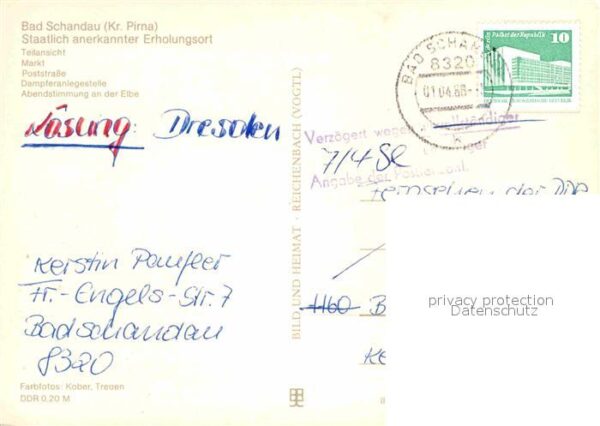 Bad Schandau (Kr. Pirna)
Staatlich anerkannter Erholungsort
Teilansicht
Markt
Poststraße
Dampferanlegestelle
Abendstimmung an der Elbe
Lösung: Dresden
BAD SCHAN
8320
01.04.86
k
Palast der Republik
10
Verzögert wegen
Angabe der Postleitzahl.
7/4 Se
Fernsehen der DDR
1160 B
Kerstin
Fr.-Engels-Str. 7
Bad Schandau
8320
BILD UND HEIMAT · REICHENBACH (VOGTL)
privacy protection
Datenschutz
Farbfotos: Kober, Treuen
DDR 0,20 M